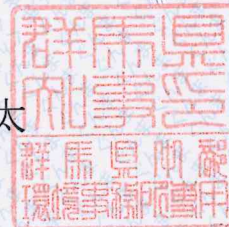 太
群馬県
知事印
群馬県
環境事務所専用